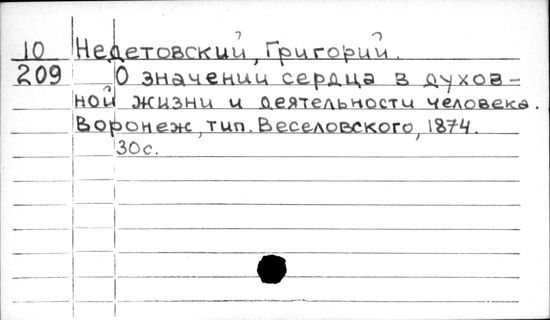 10 Недетовский, Григорий.
209 О значении сердца в духов-
ной жизни и деятельности человека.
Воронеж, тип. Веселовского, 1874.
30с.